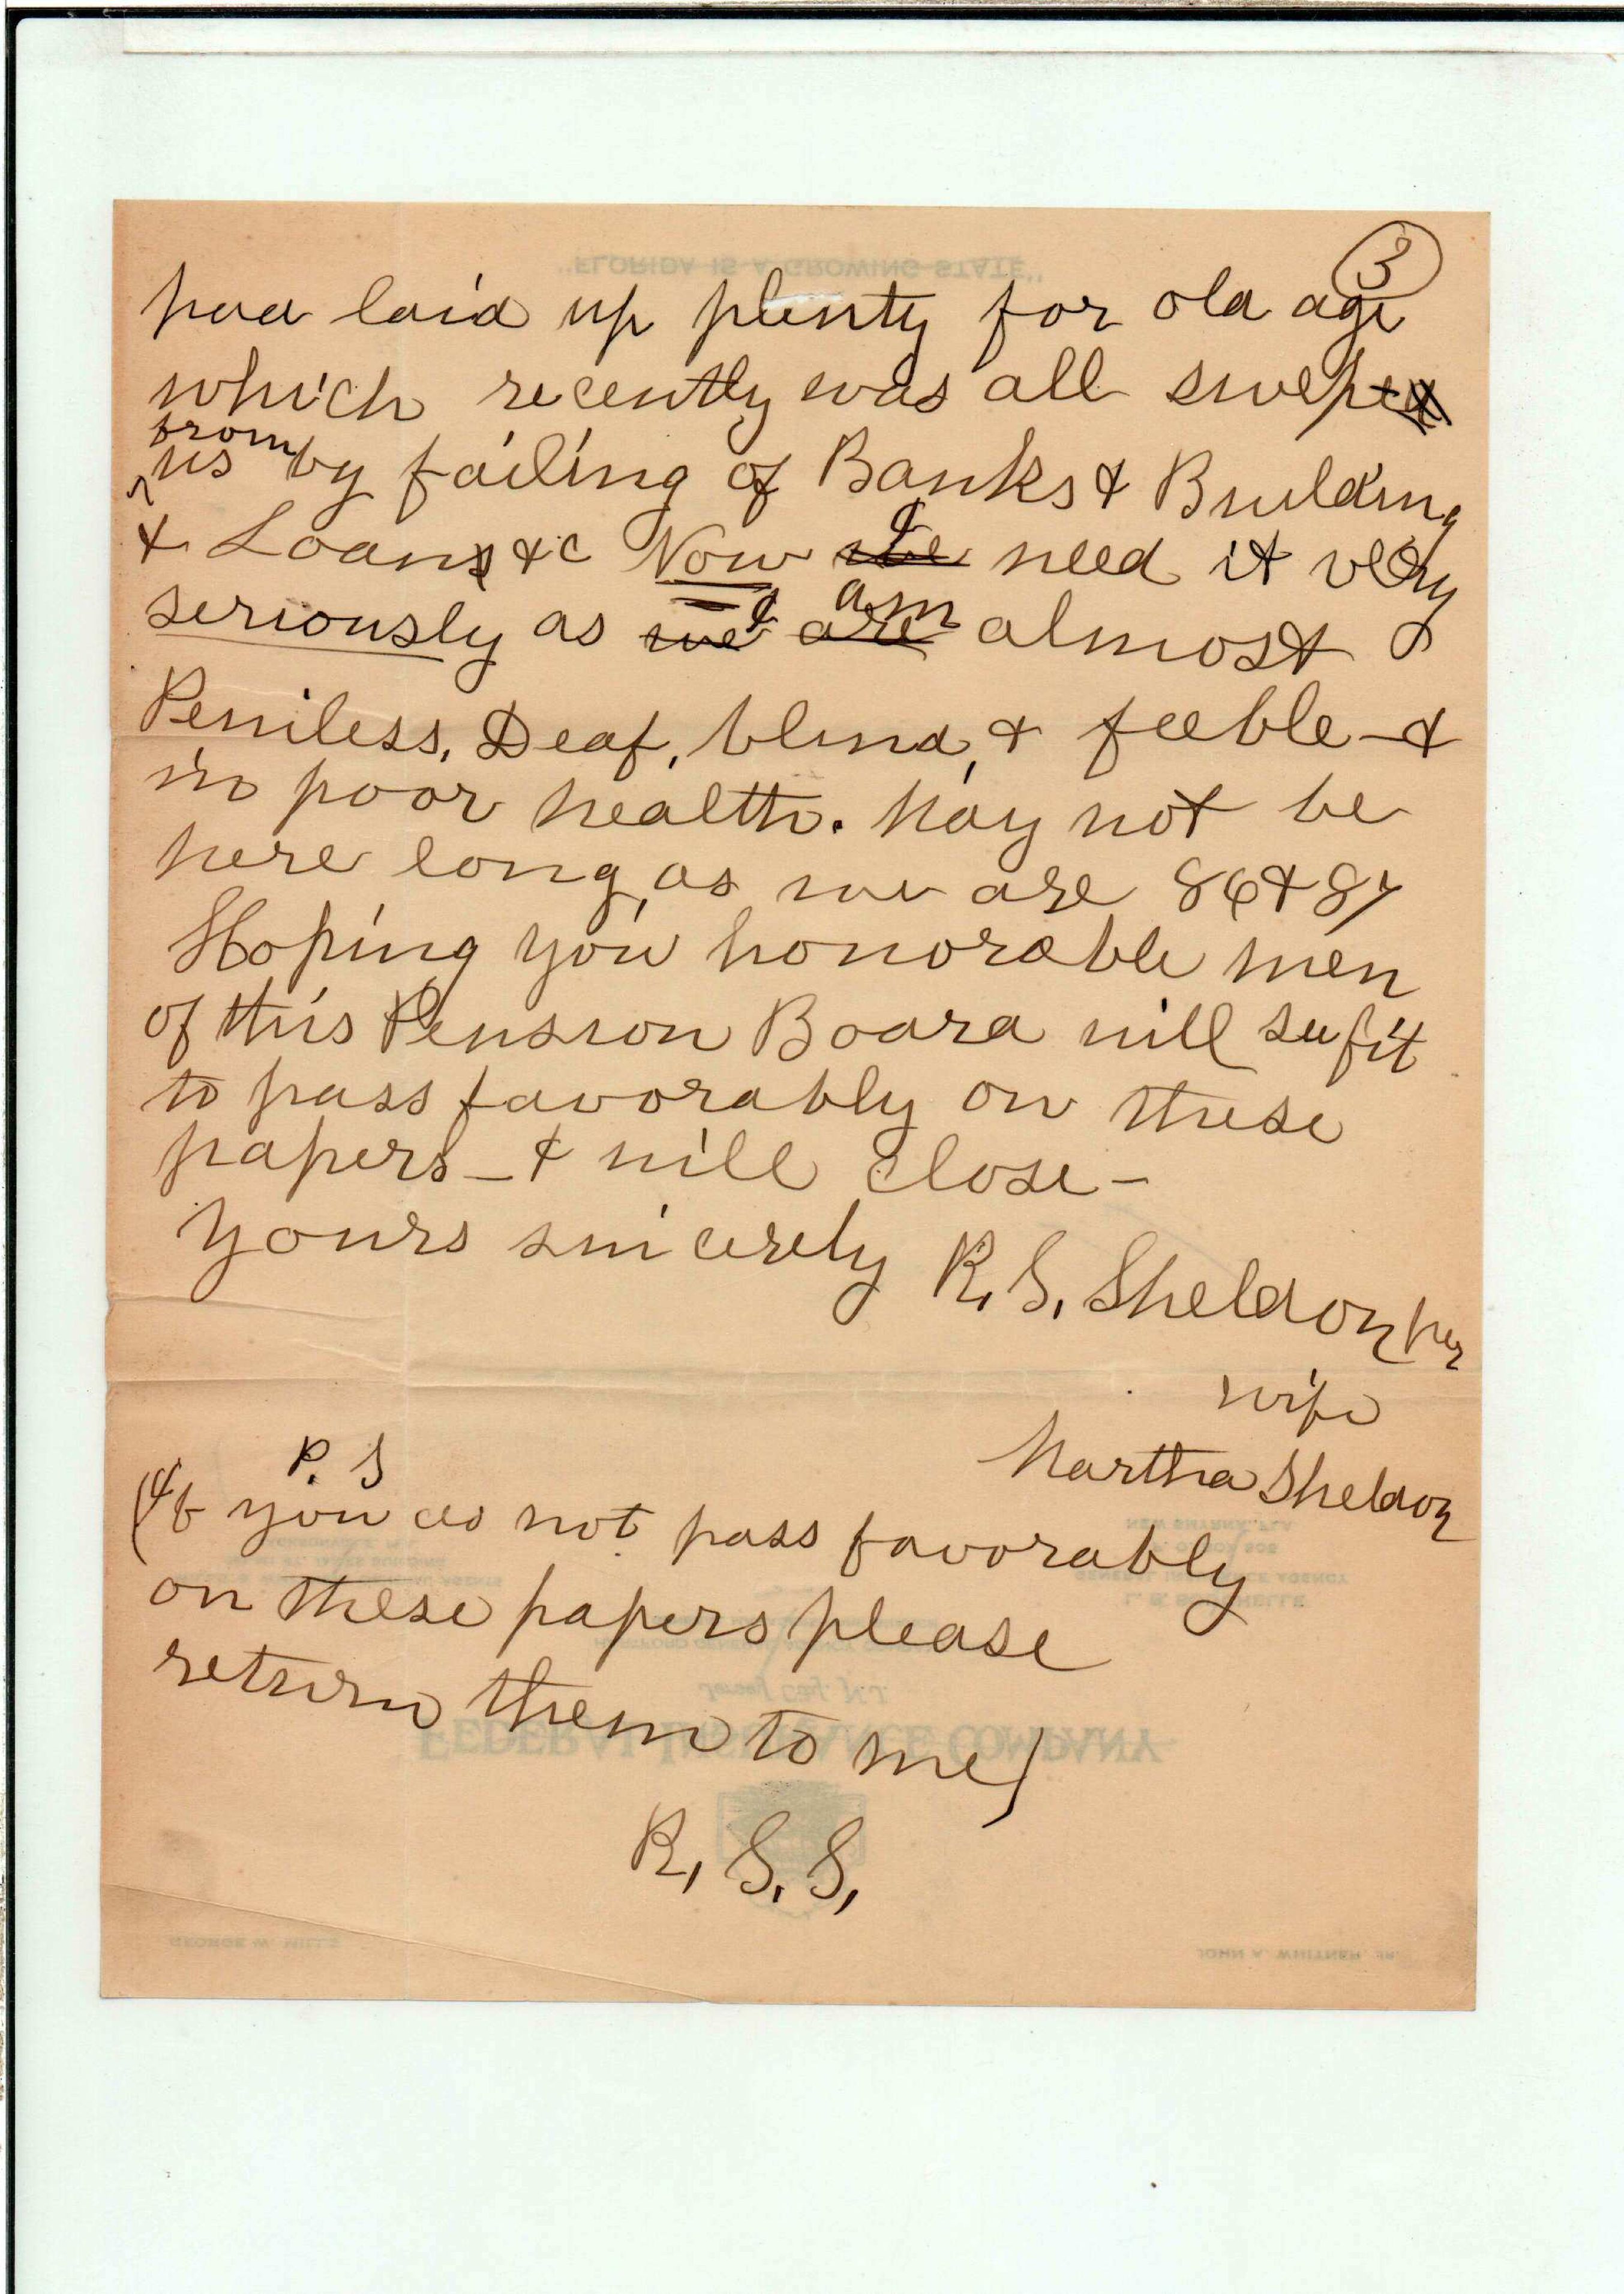 3
had laid up plenty for old age
which recently was all swept
from
us by failing of Banks & Building
& Loans &c Now I need it very
seriously as I am almost
Peniless, Deaf, blind, & feeble - &
in poor health. May not be
here long, as we are 86 & 87
Hoping you honorable men
of this Pension Board will see fit
to pass favorably on these
papers - & will close -
Yours sincerely R. S. Sheldon per
wife
Martha Sheldon
P. S
(If you do not pass favorably
on these papers please
return them to me)
R. S. S.
"FLORIDA IS A GROWING STATE"
NEW SMYRNA, FLA.
FEDERAL INSURANCE COMPANY
Jersey City, N.J.
GEORGE W. MILLS
JOHN A. WHITNER, JR.